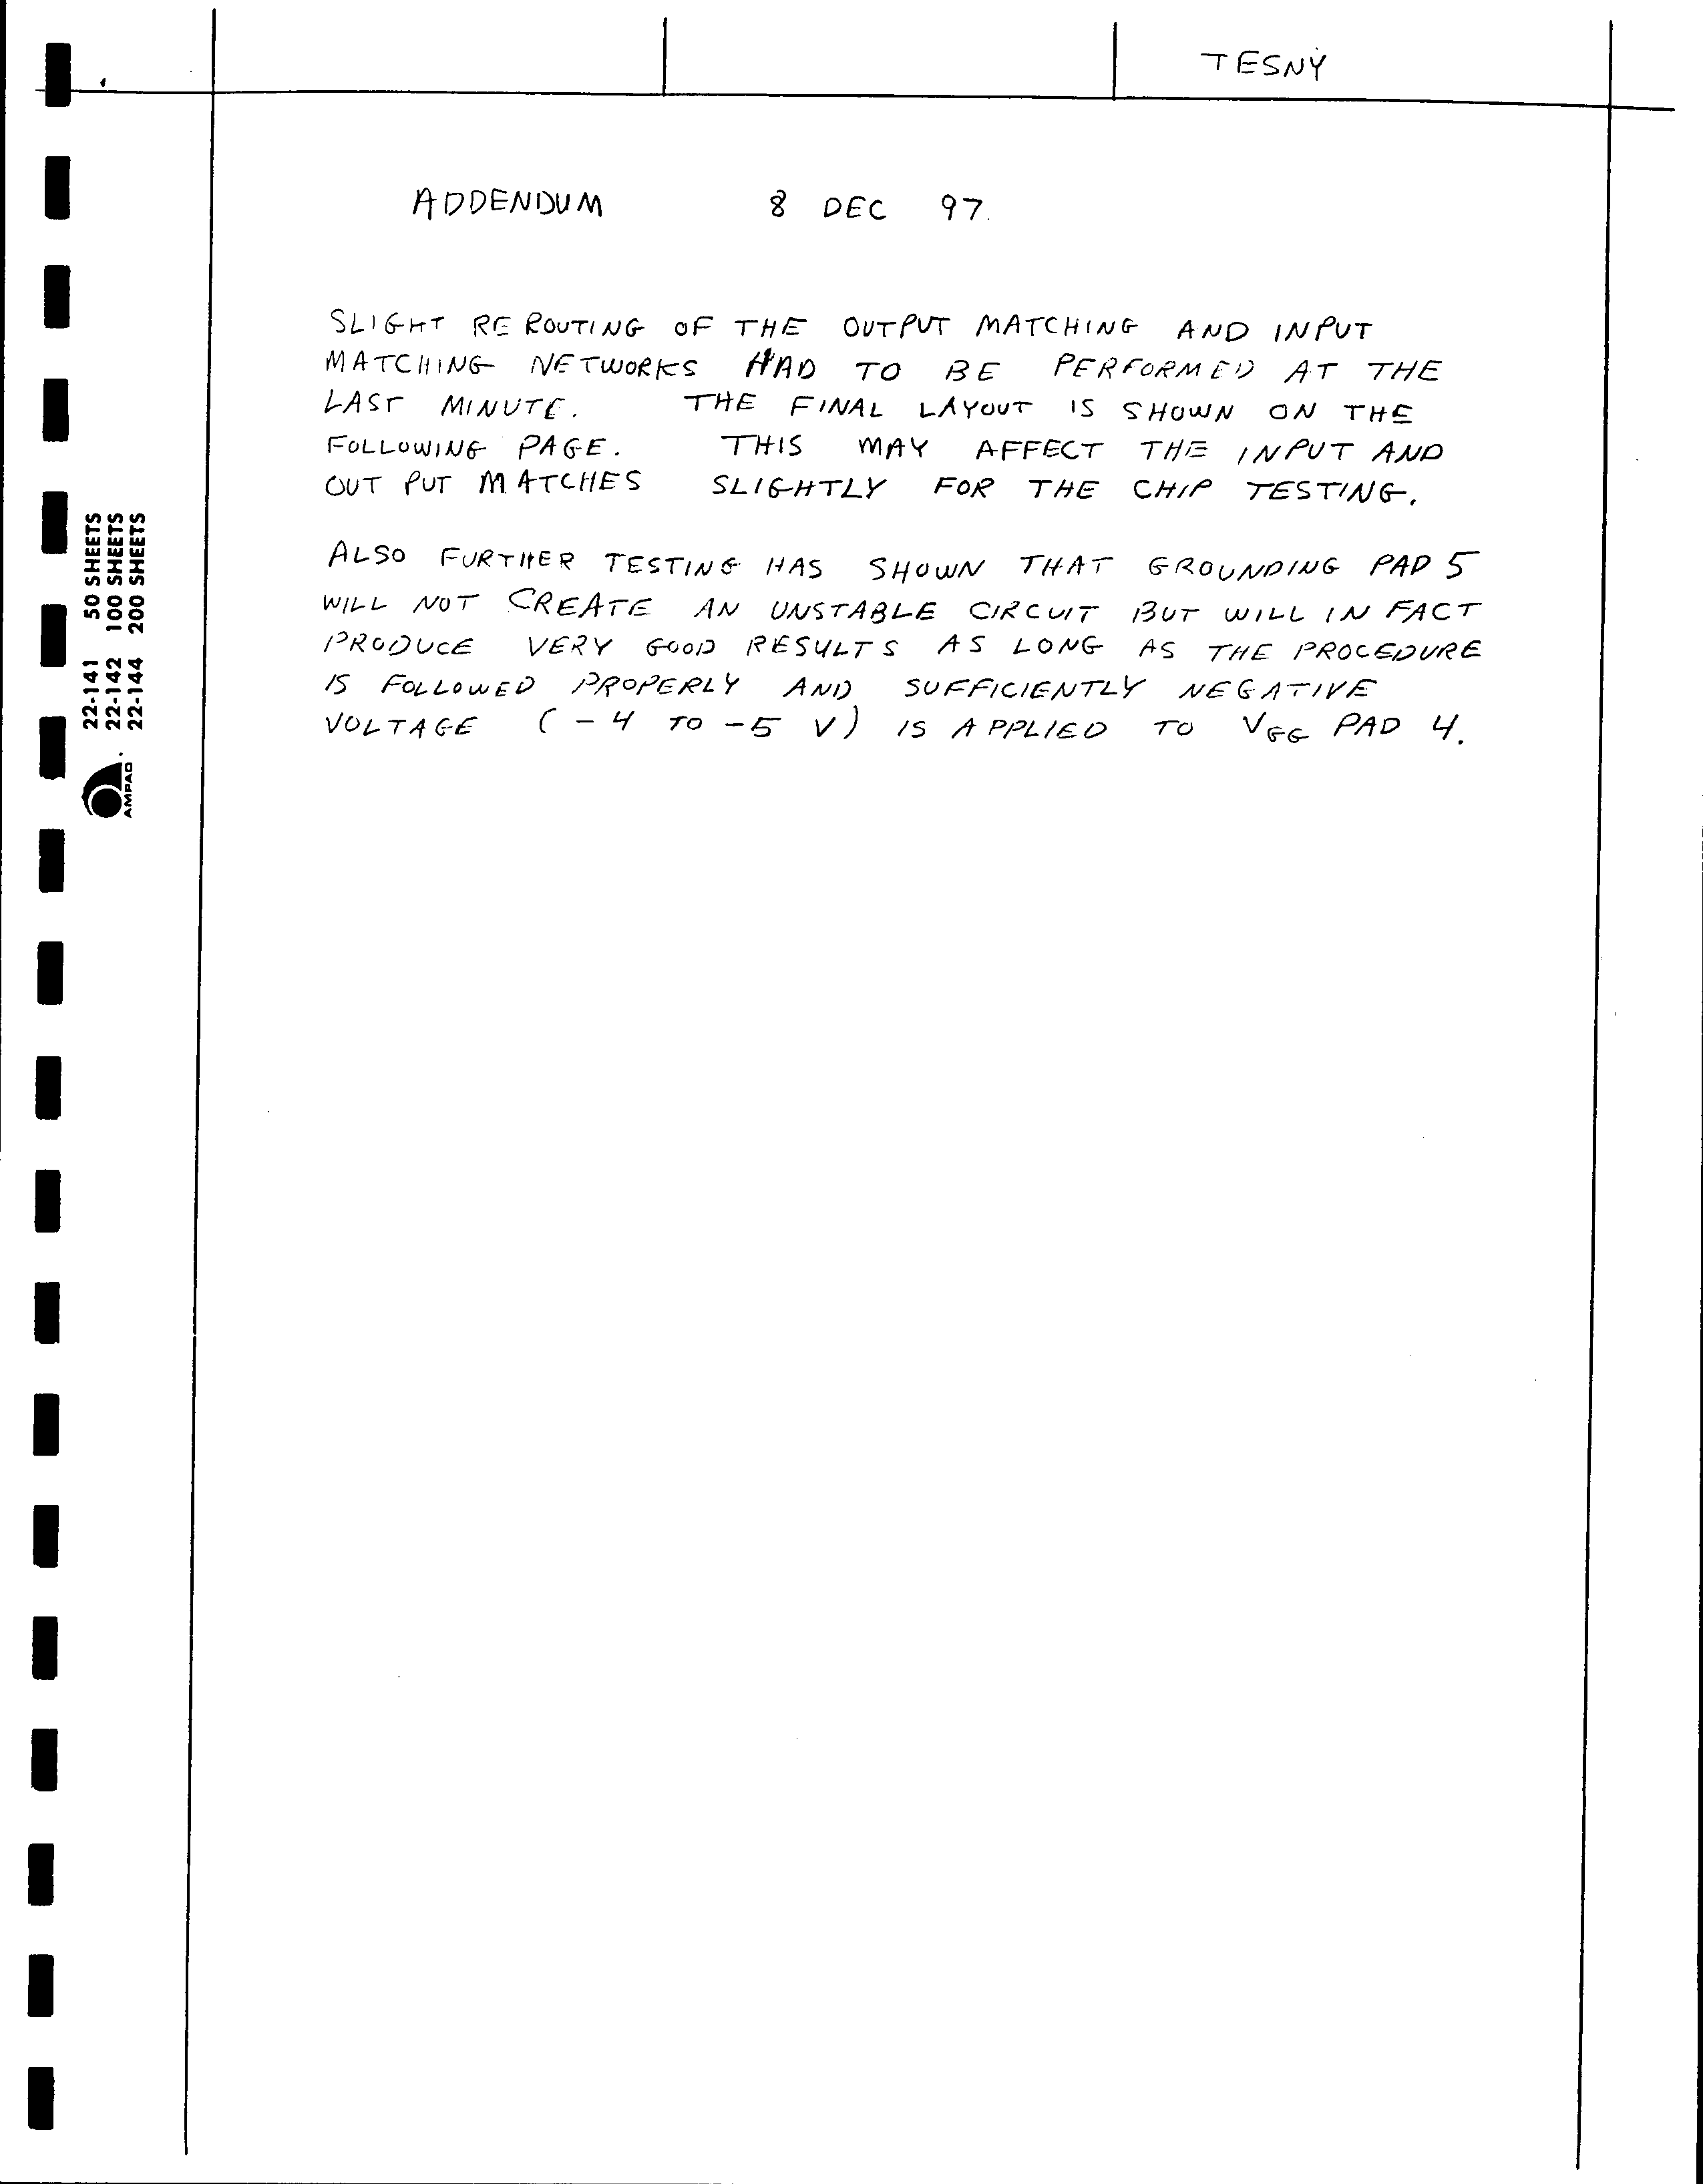 TESNY
ADDENDUM 8 DEC 97.
SLIGHT RE ROUTING OF THE OUTPUT MATCHING AND INPUT
MATCHING NETWORKS HAD TO BE PERFORMED AT THE
LAST MINUTE. THE FINAL LAYOUT IS SHOWN ON THE
FOLLOWING PAGE. THIS MAY AFFECT THE INPUT AND
OUT PUT MATCHES SLIGHTLY FOR THE CHIP TESTING.
ALSO FURTHER TESTING HAS SHOWN THAT GROUNDING PAD 5
WILL NOT CREATE AN UNSTABLE CIRCUIT BUT WILL IN FACT
PRODUCE VERY GOOD RESULTS AS LONG AS THE PROCEDURE
IS FOLLOWED PROPERLY AND SUFFICIENTLY NEGATIVE
VOLTAGE (-4 TO -5 V) IS APPLIED TO VGG PAD 4.
22-141 50 SHEETS
22-142 100 SHEETS
22-144 200 SHEETS
AMPAD